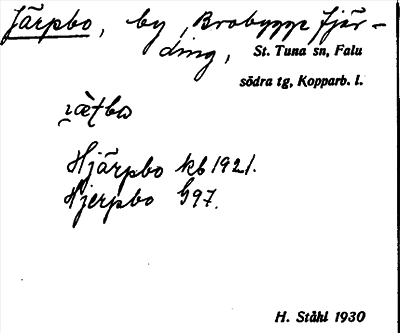 Järpbo, by, Brobygge fjär-
ding, St. Tuna sn, Falu
södra tg, Kopparb. l.
Hjärpbo kb 1921.
Hjerpbo G97.
H. Ståhl 1930